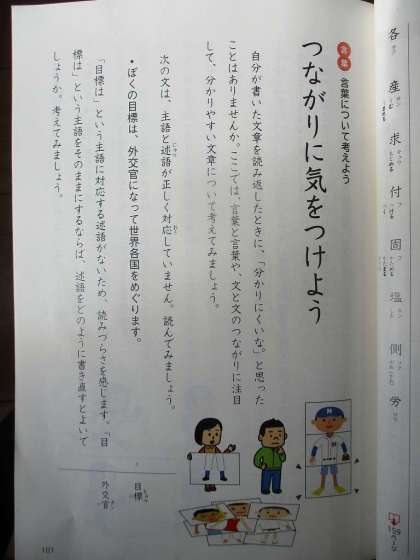 各 産 求 付 固 塩 側 労
159ページ
言葉 言葉について考えよう
つながりに気をつけよう
自分が書いた文章を読み返したときに、「分かりにくいな。」と思った
ことはありませんか。ここでは、言葉と言葉や、文と文のつながりに注目
して、分かりやすい文章について考えてみましょう。
次の文は、主語と述語が正しく対応していません。読んでみましょう。
・ぼくの目標は、外交官になって世界各国をめぐります。
「目標は」という主語に対応する述語がないため、読みづらさを感じます。「目
標は」という主語をそのままにするならば、述語をどのように書き直すとよいで
しょうか。考えてみましょう。
目標
外交官
101